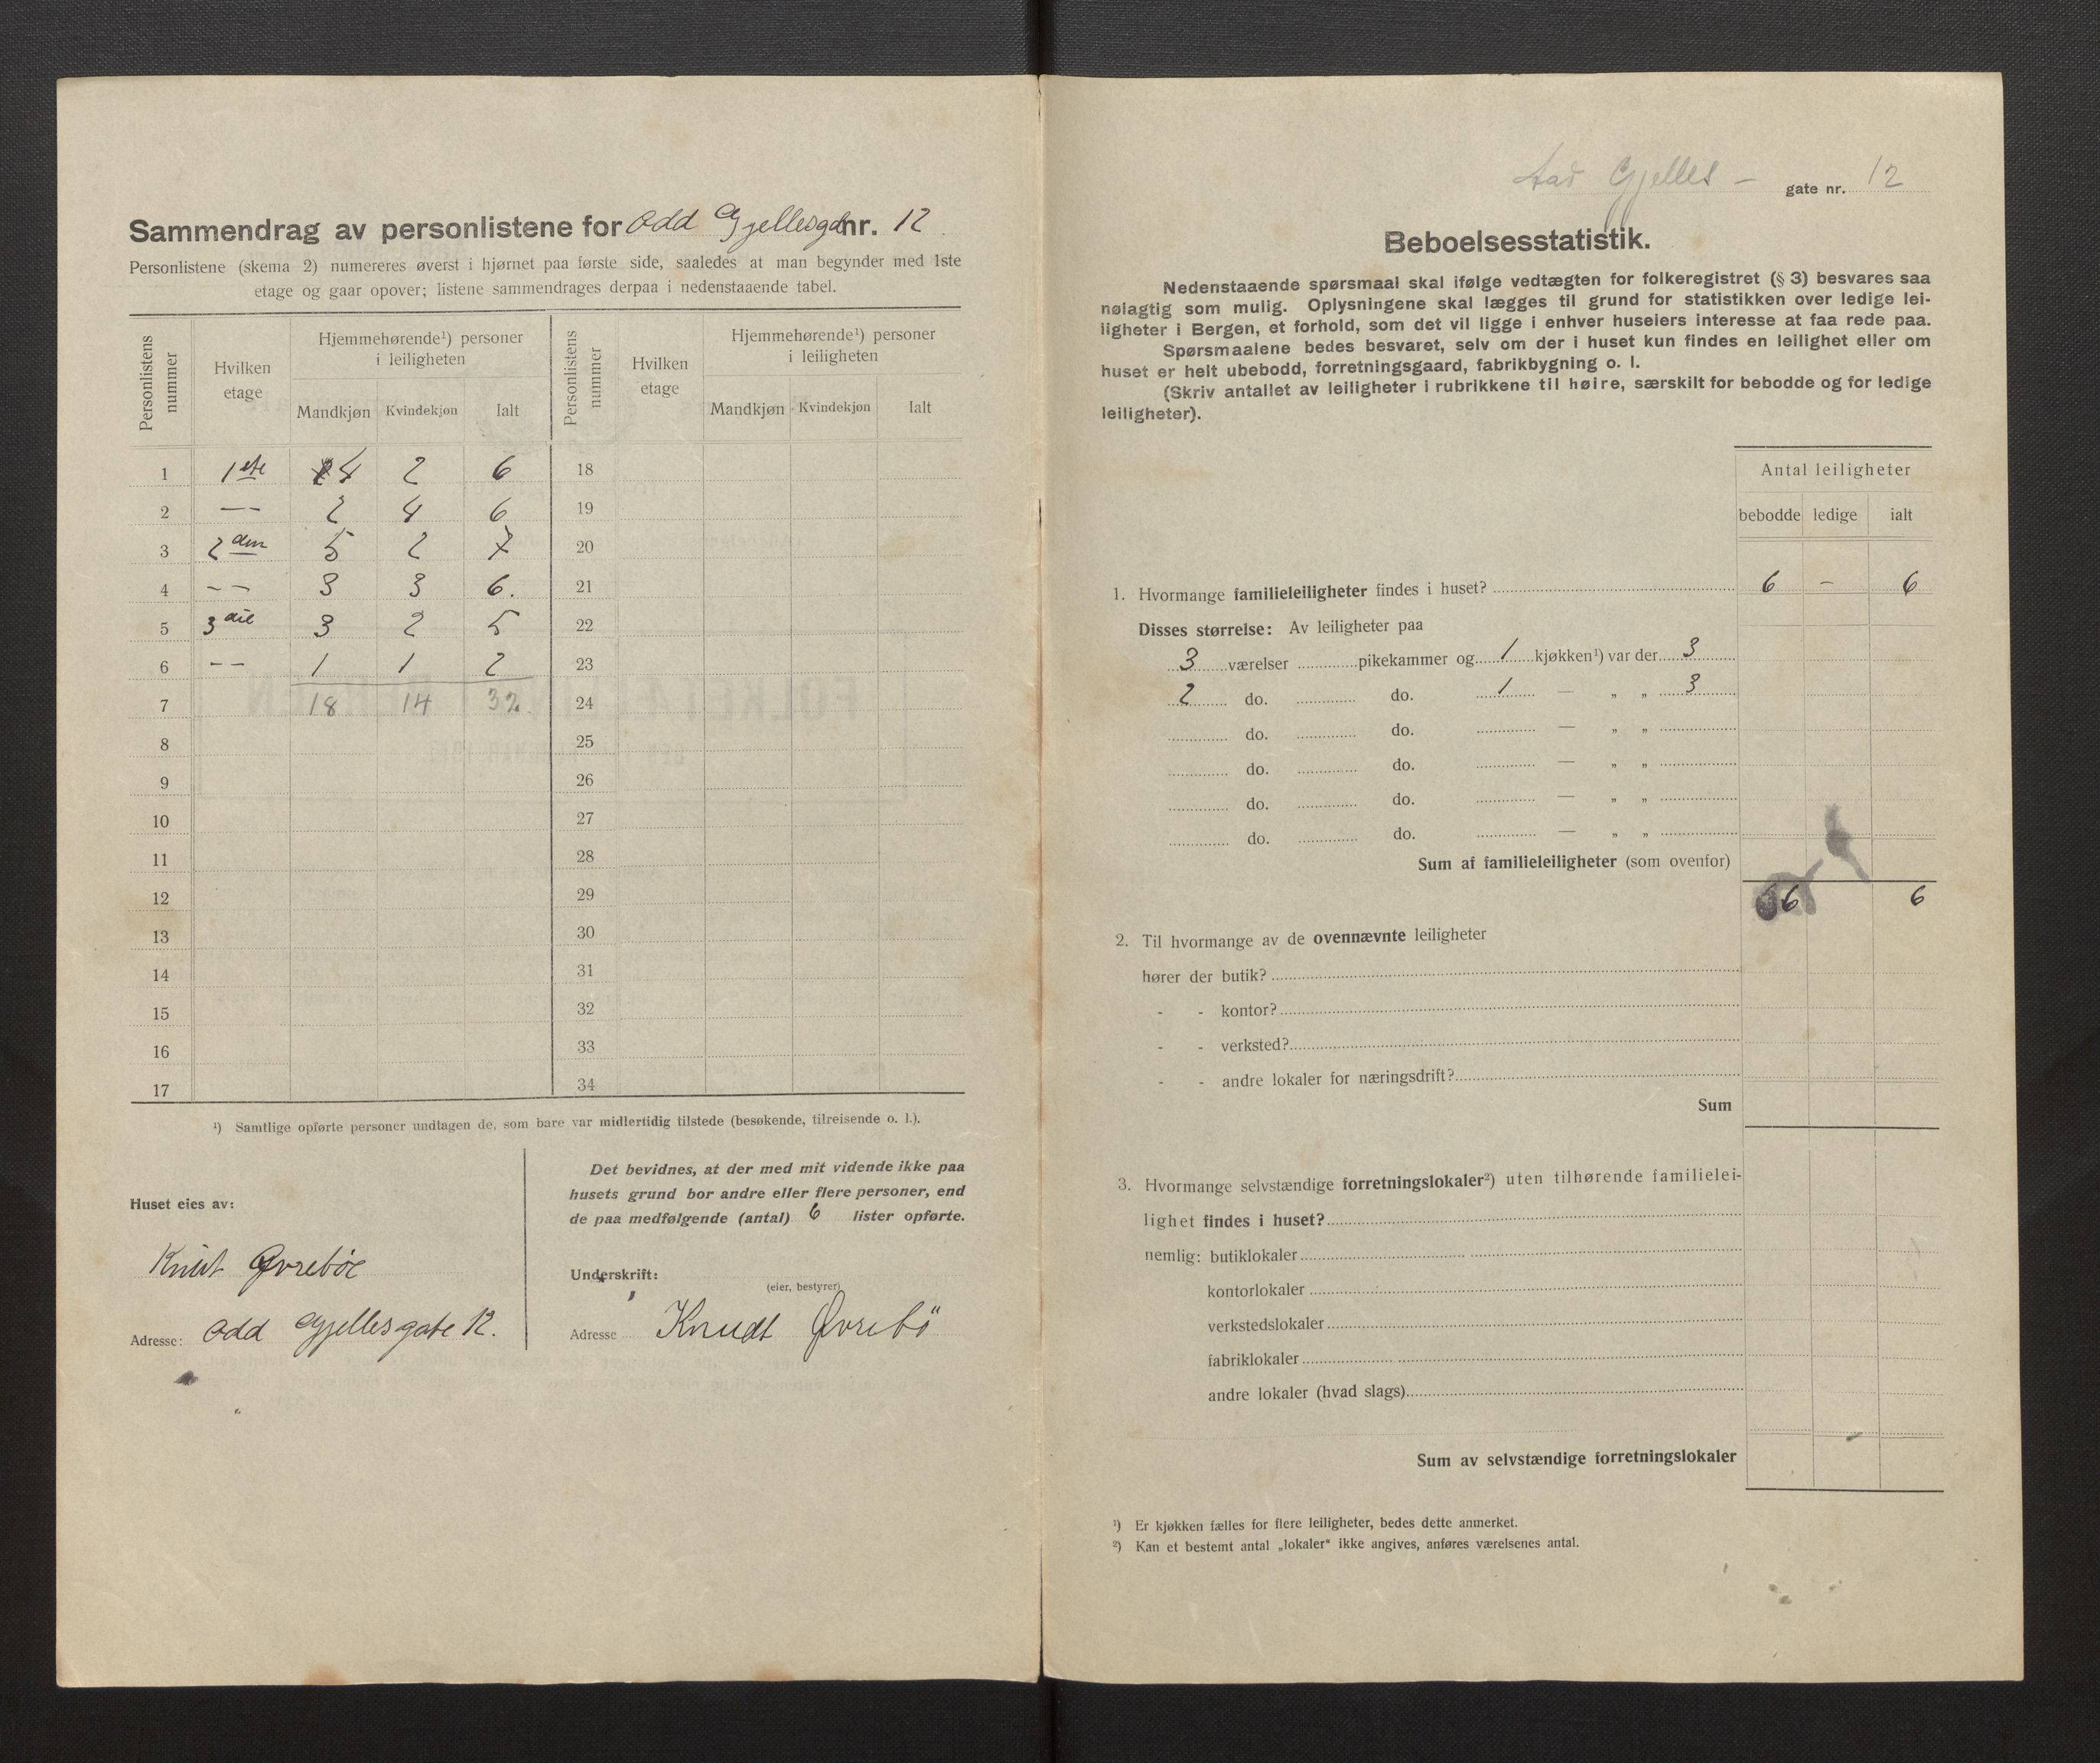 Sammendrag av personlistene for Odd Gjellesga nr. 12.
Personlistene (skema 2) numereres øverst i hjørnet paa første side, saaledes at man begynder med 1ste
etage og gaar opover; listene sammendrages derpaa i nedenstaaende tabel.
Personlistens nummer
Hvilken etage
Hjemmehørende¹) personer i leiligheten
Mandkjøn Kvindekjøn Ialt
Personlistens nummer
Hvilken etage
Hjemmehørende¹) personer i leiligheten
Mandkjøn Kvindekjøn Ialt
1 1ste 4 2 6 18
2 — — 2 4 6 19
3 2den 5 2 7 20
4 — — 3 3 6. 21
5 3die 3 2 5 22
6 — — 1 1 2 23
7 18 14 32 24
8 25
9 26
10 27
11 28
12 29
13 30
14 31
15 32
16 33
17 34
¹) Samtlige opførte personer undtagen de, som bare var midlertidig tilstede (besøkende, tilreisende o. l.).
Huset eies av:
Knut Øvrebøe
Adresse: Odd Gjellesgate 12.
Det bevidnes, at der med mit vidende ikke paa
husets grund bor andre eller flere personer, end
de paa medfølgende (antal) 6 lister opførte.
Underskrift:
(eier, bestyrer)
Adresse Knudt Øvrebö
Gjelles – gate nr. 12
Beboelsesstatistik.
Nedenstaaende spørsmaal skal ifølge vedtægten for folkeregistret (§ 3) besvares saa
nøiagtig som mulig. Oplysningene skal lægges til grund for statistikken over ledige lei-
ligheter i Bergen, et forhold, som det vil ligge i enhver huseiers interesse at faa rede paa.
Spørsmaalene bedes besvaret, selv om der i huset kun findes en leilighet eller om
huset er helt ubebodd, forretningsgaard, fabrikbygning o. l.
(Skriv antallet av leiligheter i rubrikkene til høire, særskilt for bebodde og for ledige
leiligheter).
Antal leiligheter
bebodde ledige ialt
1. Hvormange familieleiligheter findes i huset? 6 – 6
Disses størrelse: Av leiligheter paa
3 værelser pikekammer og 1 kjøkken¹) var der 3
2 do. do. 1 — „ „ 3
do. do. — „ „
do. do. — „ „
do. do. — „ „
do. do. — „ „
Sum af familieleiligheter (som ovenfor)
6 6
2. Til hvormange av de ovennævnte leiligheter
hører der butik?
- - kontor?
- - verksted?
- - andre lokaler for næringsdrift?
Sum
3. Hvormange selvstændige forretningslokaler²) uten tilhørende familielei-
lighet findes i huset?
nemlig: butiklokaler
kontorlokaler
verkstedslokaler
fabriklokaler
andre lokaler (hvad slags)
Sum av selvstændige forretningslokaler
¹) Er kjøkken fælles for flere leiligheter, bedes dette anmerket.
²) Kan et bestemt antal „lokaler“ ikke angives, anføres værelsenes antal.